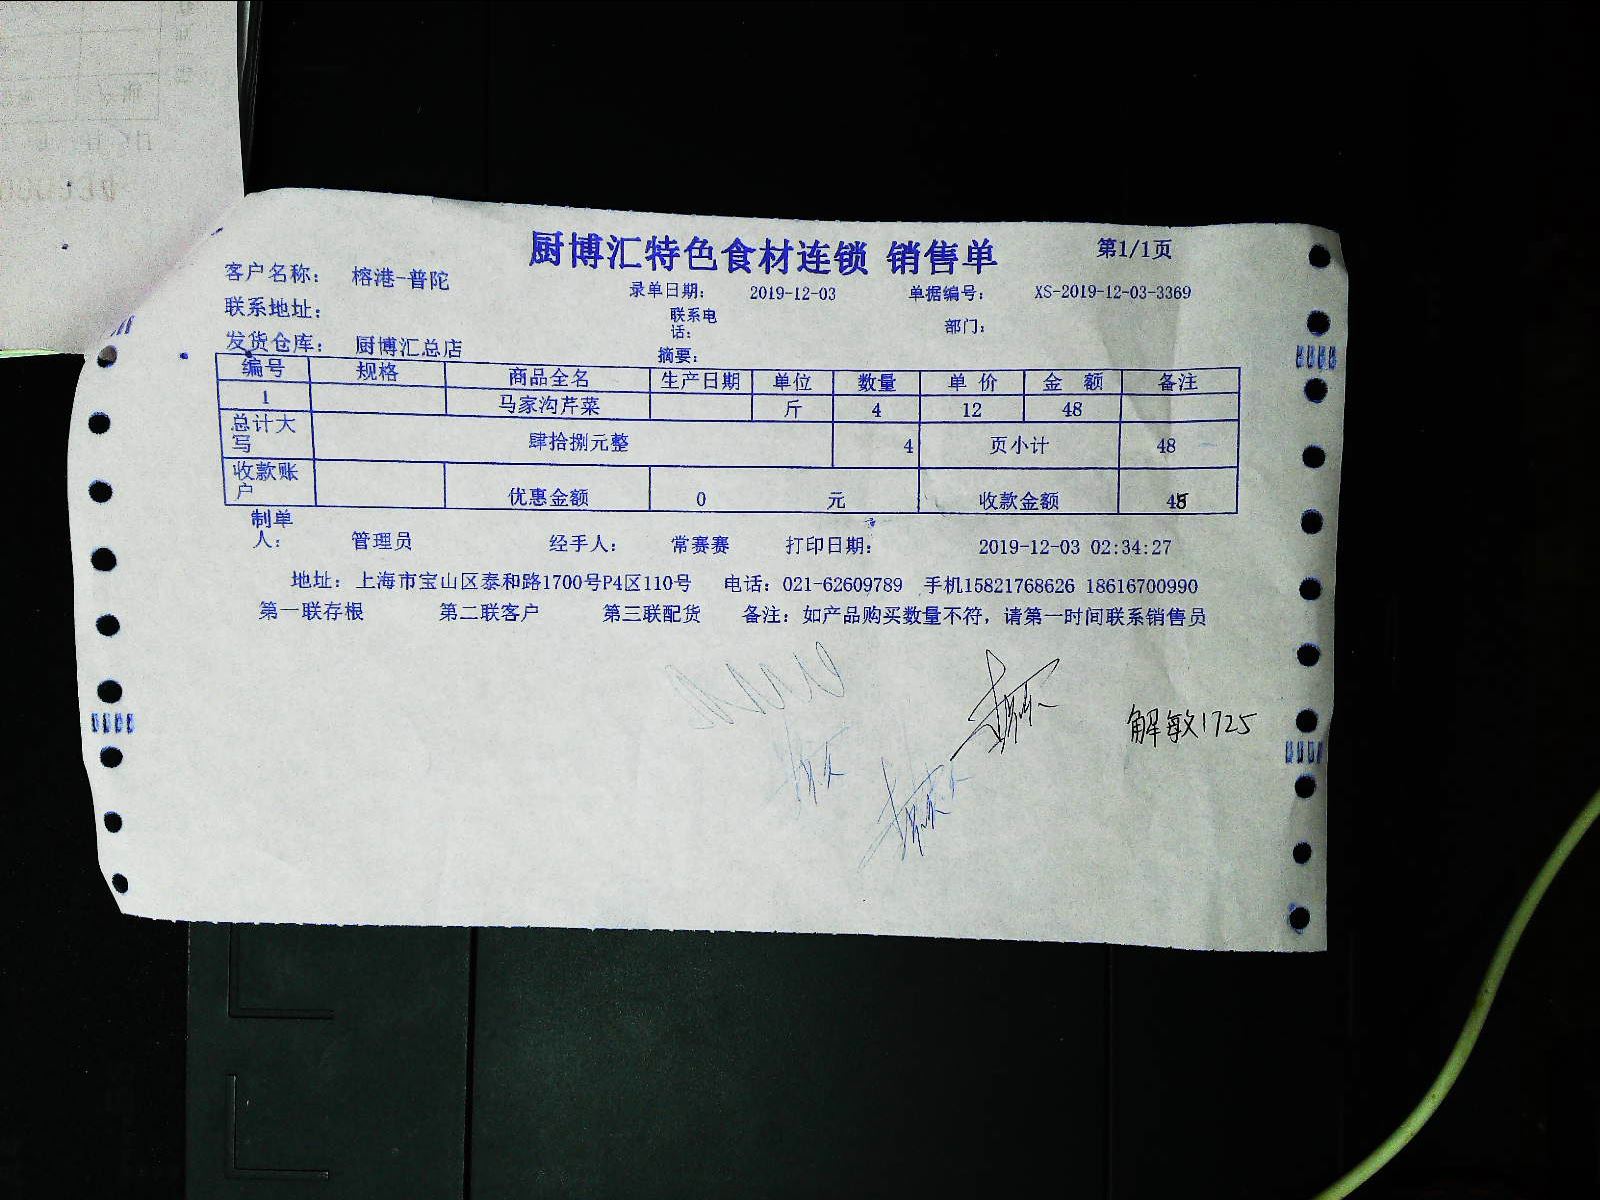 厨博汇特色食材连锁 销售单 第1/1页
客户名称： 榕港-普陀 录单日期： 2019-12-03 单据编号： XS-2019-12-03-3369
联系地址： 联系电话： 部门：
发货仓库： 厨博汇总店 摘要：
编号 规格 商品全名 生产日期 单位 数量 单 价 金 额 备注
1 马家沟芹菜 斤 4 12 48
总计大写 肆拾捌元整 4 页小计 48
收款账户 优惠金额 0 元 收款金额 48
制单人： 管理员 经手人： 常赛赛 打印日期： 2019-12-03 02:34:27
地址：上海市宝山区泰和路1700号P4区110号 电话：021-62609789 手机15821768626 18616700990
第一联存根 第二联客户 第三联配货 备注：如产品购买数量不符，请第一时间联系销售员
解敏1725